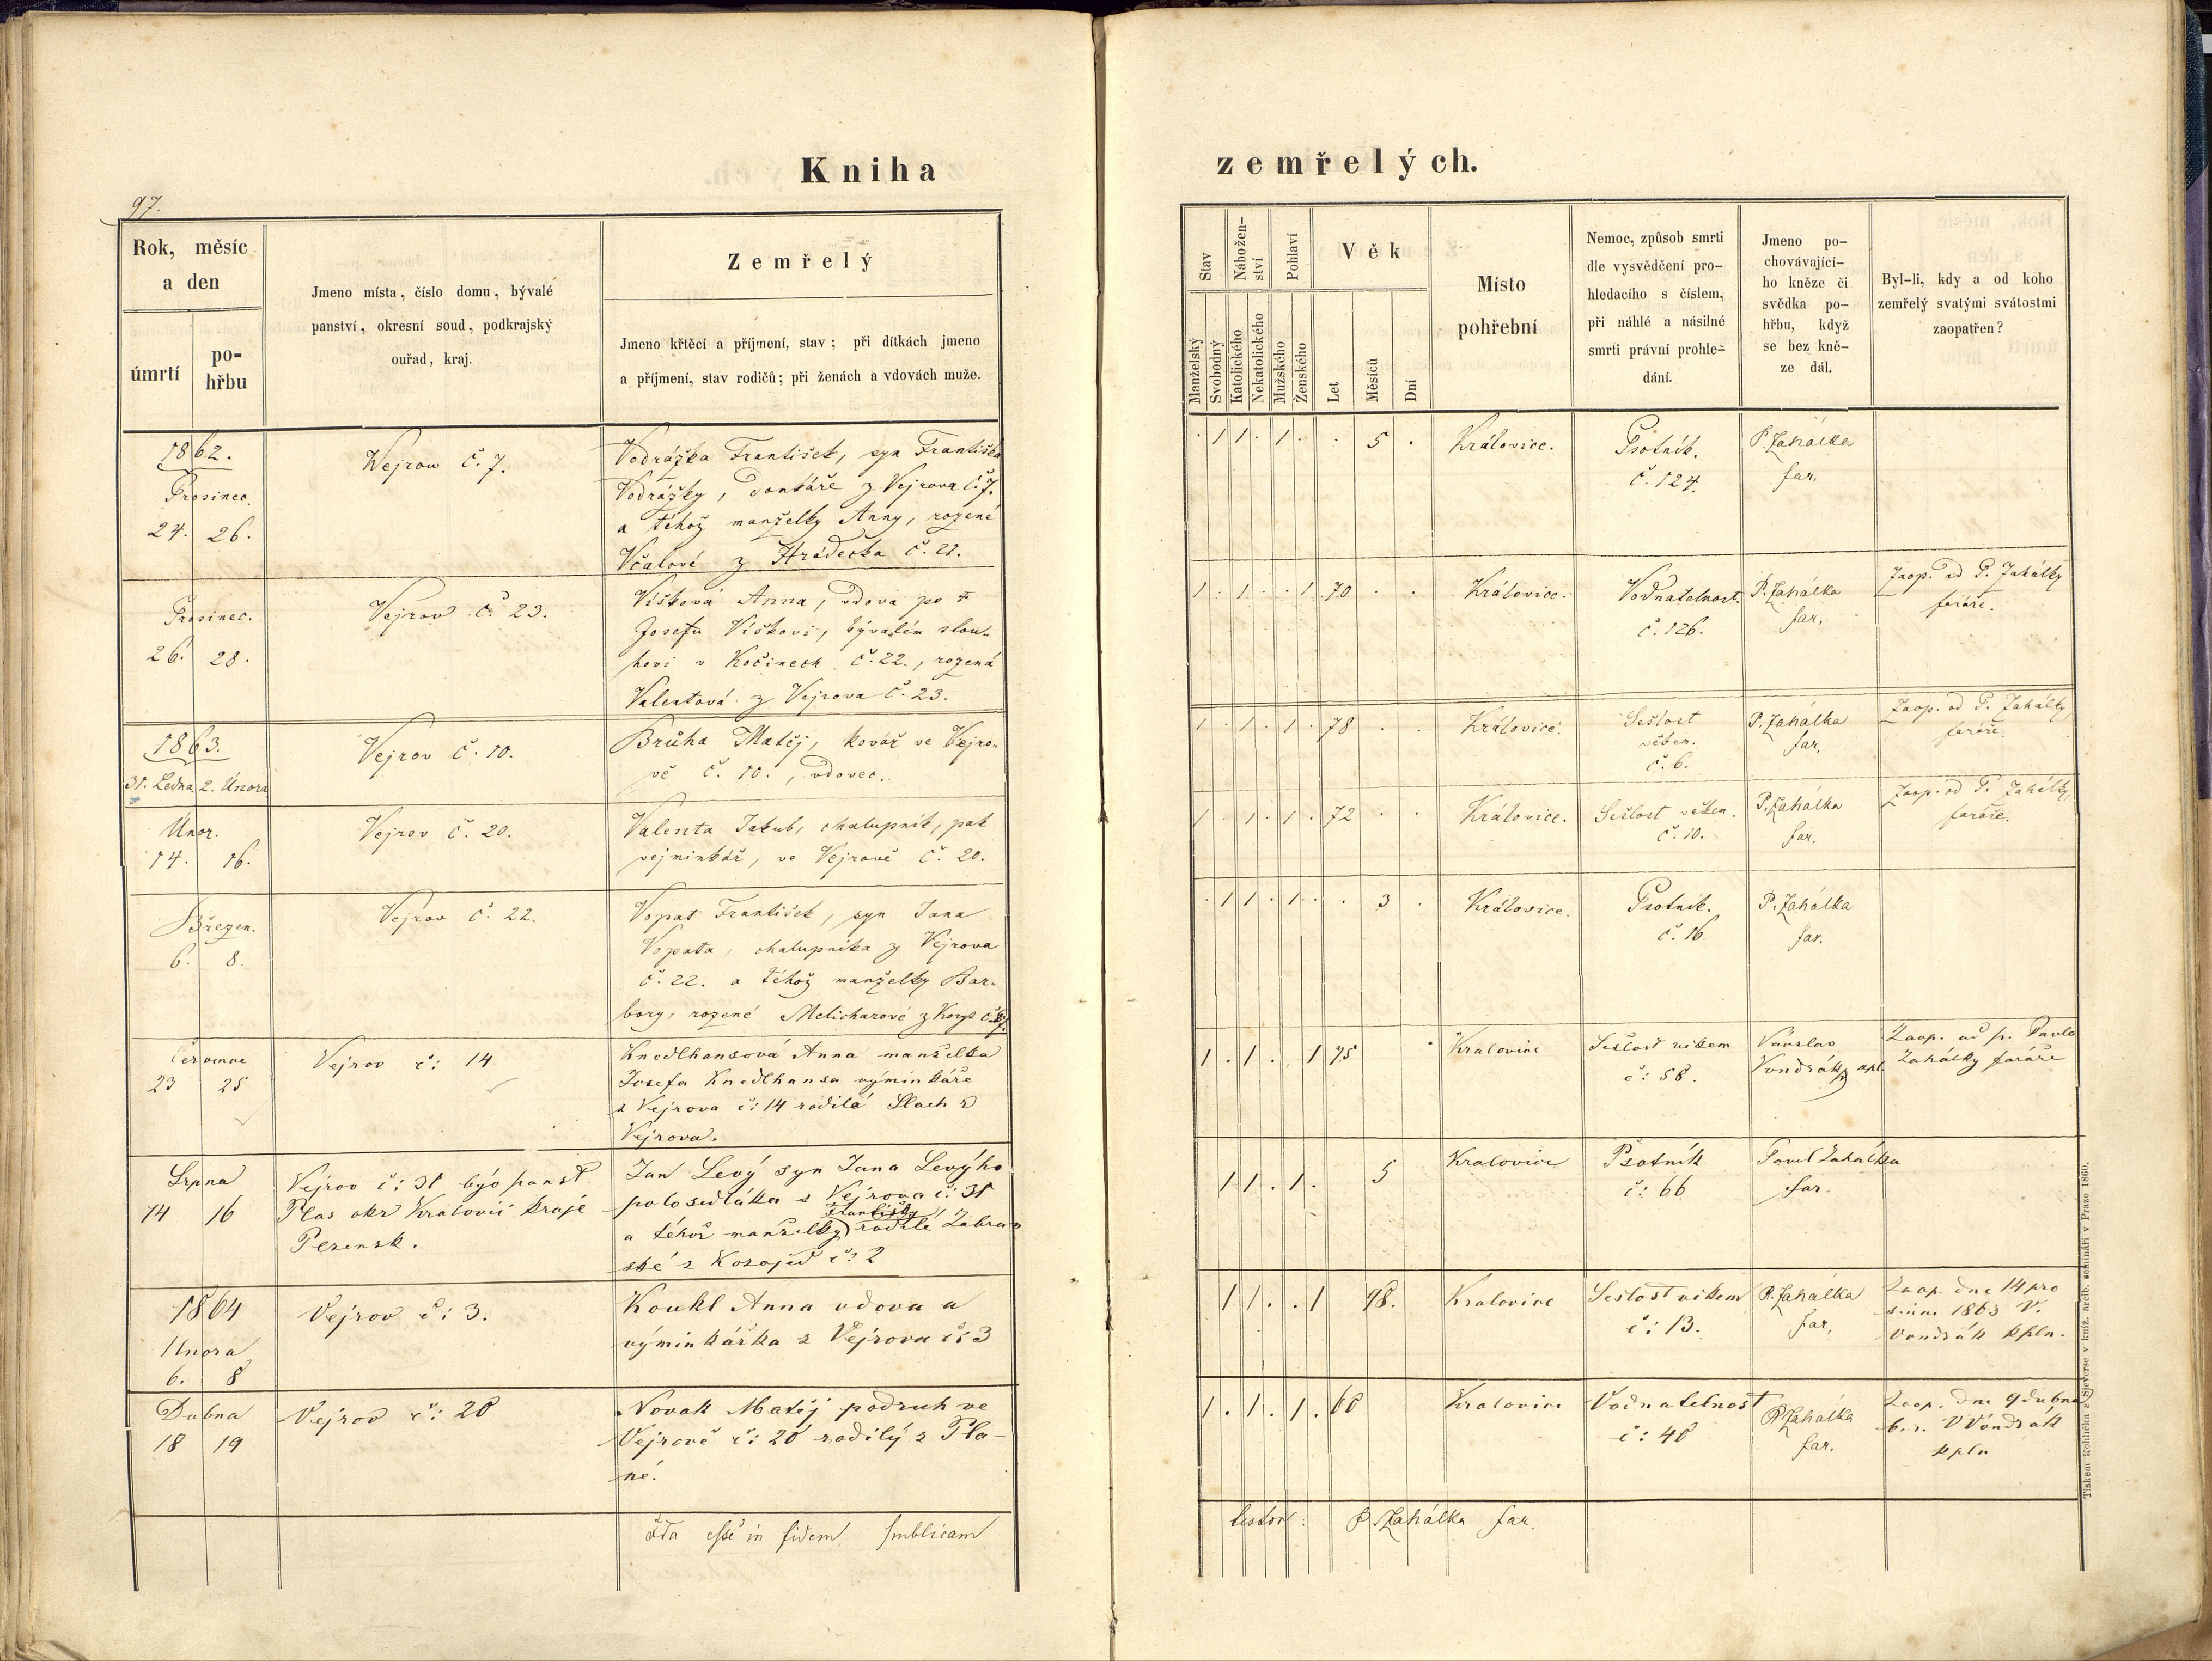 Kniha
zemřelých.
97.
Rok, měsíc
a den
úmrtí
po-
hřbu
Jmeno místa, číslo domu, bývalé
panství, okresní soud, podkrajský
ouřad, kraj.
Zemřelý
Jmeno křtěcí a příjmení, stav; při dítkách jmeno
a příjmení, stav rodičů; při ženách a vdovách muže.
Stav
Nábožen-
ství
Pohlaví
Věk
Manželský
Svobodný
Katolického
Nekatolického
Mužského
Ženského
Let
Měsíců
Dní
Místo
pohřební
Nemoc, způsob smrti
dle vysvědčení pro-
hledacího s číslem,
při náhlé a násilné
smrti právní prohle-
dání.
Jmeno po-
chovávající-
ho kněze či
svědka po-
hřbu, když
se bez kně-
ze dál.
Byl-li, kdy a od koho
zemřelý svatými svátostmi
zaopatřen?
1862.
Prosinec.
24. 26.
Wejrow č. 7.
Vodrážka František, syn Františka
Vodrážky, domkáře z Vejrova č. 7.
a téhož manželky Anny, rozené
Včalové z Hrádečka č. 21.
. 1 1 . 1 . . 5 .
Královice.
Psotník.
č. 124.
P. Zahálka
far.
Prosinec.
26. 28.
Vejrov č. 23.
Víšková Anna, vdova po †
Josefu Víškovi, bývalém slou-
hovi v Kočínech č. 22., rozená
Valentová z Vejrova č. 23.
1 . 1 . . 1 70 . .
Královice.
Vodnatelnost.
č. 126.
P. Zahálka
far.
Zaop. od P. Zahálky
faráře.
1863.
31. Ledna 2. Února
Vejrov č. 10.
Brůha Matěj, kovář ve Vejro-
vě č. 10., vdovec.
1 . 1 . 1 . 78 . .
Královice.
Sešlost
věkem.
č. 6.
P. Zahálka
far.
Zaop. od P. Zahálky
faráře.
Únor.
14. 16.
Vejrov č. 20.
Valenta Jakub, chalupník, pak
vejminkář, ve Vejrově č. 20.
1 . 1 . 1 . 72 . .
Královice.
Sešlost věkem.
č. 10.
P. Zahálka
far.
Zaop. od P. Zahálky
faráře.
Březen.
6. 8.
Vejrov č. 22.
Vopat František, syn Jana
Vopata, chalupníka z Vejrova
č. 22. a téhož manželky Bar-
bory, rozené Melicharové z
. 1 1 . 1 . . 3 .
Královice.
Psotník.
č. 16.
P. Zahálka
far.
Července
23 25
Vejrov č: 14
Knedlhansová Anna manželka
Josefa Knedlhansa výminkáře
z Vejrova č: 14 rodilá z
Vejrova.
1 . 1 . 1 75 .
Kralovice
Sešlost věkem
č: 58.
Václav
Vondrák kpl.
Zaop. od p. Pavla
Zahálky faráře
Srpna
14 16
Vejrov č: 31 býv panst
Plas okr Kralovic kraje
Plzensk.
Jan Levý syn Jana Levýho
polosedláka z Vejrova č: 31
a téhož manželky Františky rodilé
ské z Kozojed č: 2
1 1 . 1 . 5
Kralovice
Psotník
č: 66
Pavel Zahálka
far.
1864
Února
6. 8
Vejrov č: 3.
Koukl Anna vdova a
výminkářka z Vejrova č: 3
1 1 . . 1 98.
Kralovice
Sešlost věkem
č: 13.
P. Zahálka
far.
Zaop. dne 14 pro
since 1863 V.
Vondrák kpln.
Dubna
18 19
Vejrov č: 20
Novak Matěj podruh ve
Vejrově č: 20 rodilý z Pla-
né.
1 . 1 . 1 . 60
Kralovice
Vodnatelnost
č: 40
P. Zahálka
far.
Zaop. dne 9 dubna
b. r. V Vondrák
kpln
Ita esse in fidem publicam
testor: P. Zahálka far.
Tiskem Rohlíčka z Sieverse v kníž. arcib. semináři v Praze 1860.